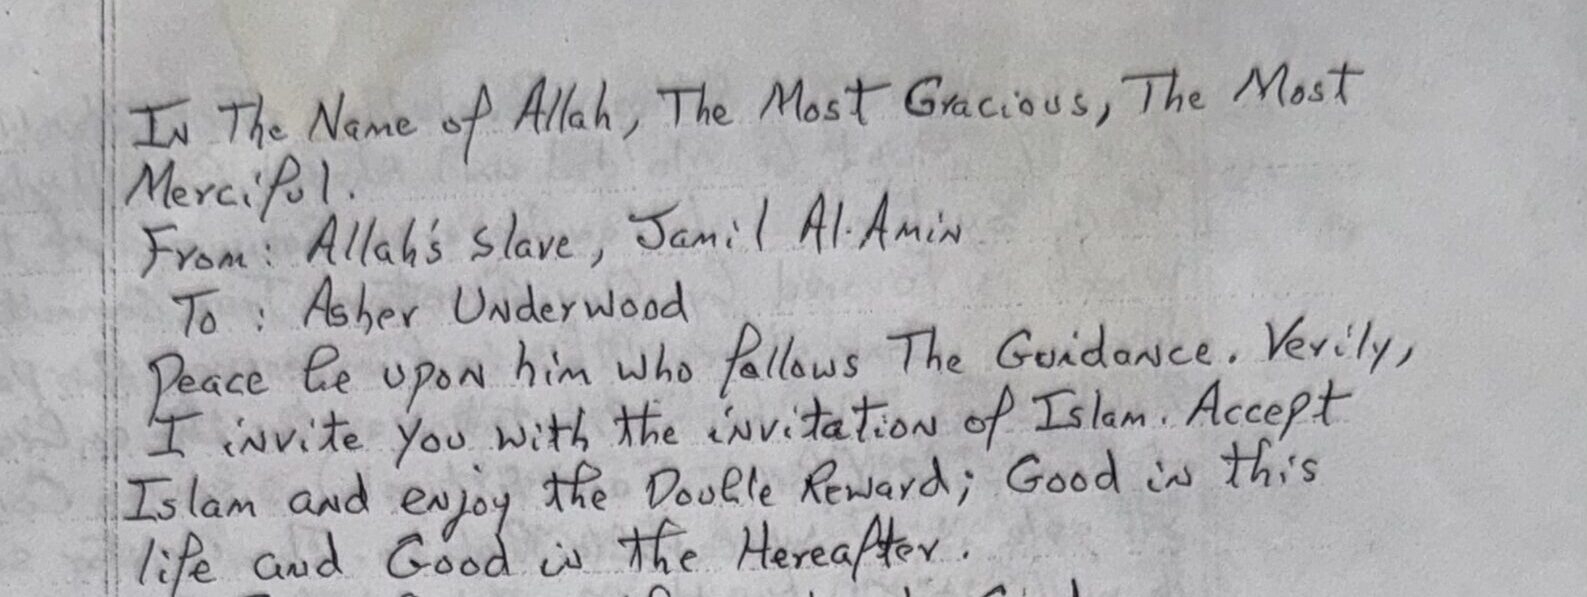 In The Name of Allah, The Most Gracious, The Most
Merciful.
From: Allah's slave, Jamil Al-Amin
To: Asher Underwood
Peace be upon him who follows The Guidance. Verily,
I invite you with the invitation of Islam. Accept
Islam and enjoy the Double Reward; Good in this
life and Good in the Hereafter.